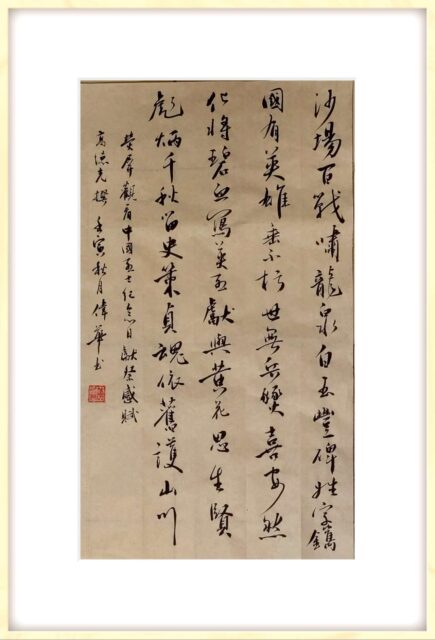 沙場百戰嘯龍泉白玉豐碑姓字鐫
國有英雄垂不朽世無兵燹喜安然
化將碧血寫英烈獻與黃花思先賢
彪炳千秋留史策貞魂依舊護山川
熒屏觀看中國烈士紀念日獻祭感賦
高德光撰壬寅秋月偉華书